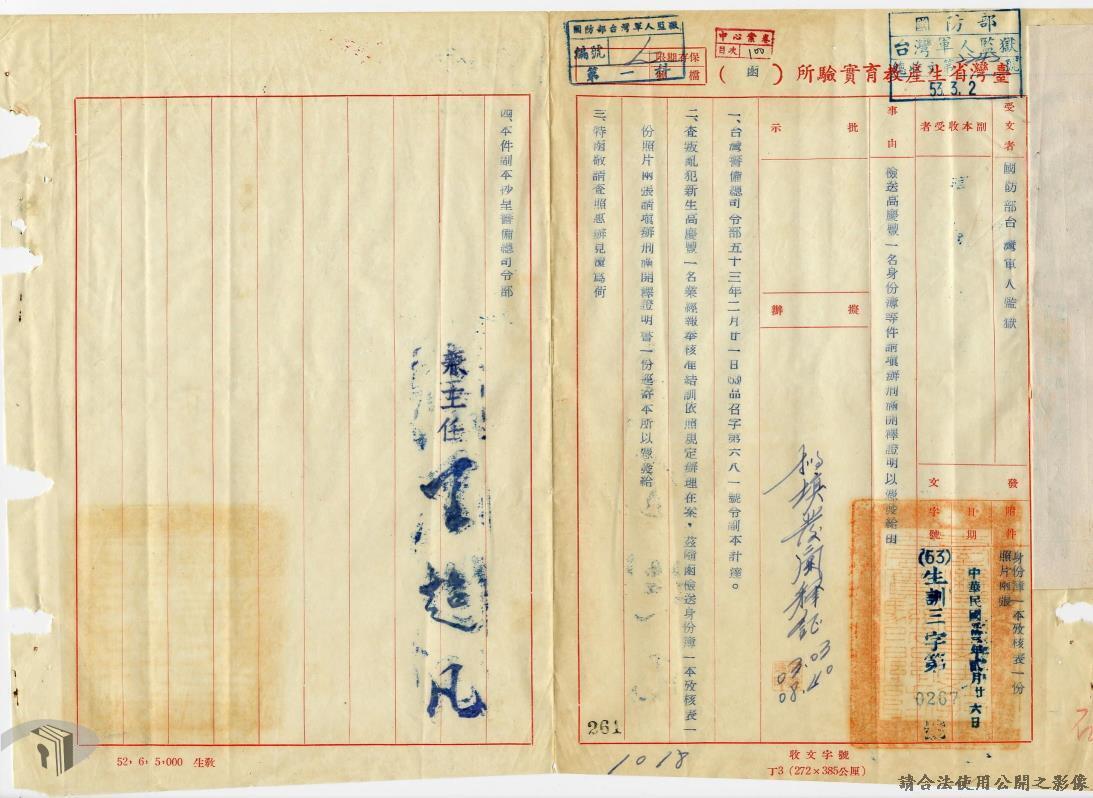 臺灣省生產教育實驗所（函）
國防部台灣軍人監獄
編號
第一
保存期限
檔
中心案卷
目次 100
國防部
台灣軍人監獄
53.3.2
受文者
國防部台灣軍人監獄
副本收受者
發文
附件
身份簿一本攷核表一份
照片兩張
日期
中華民國五十三年貳月廿六日
字號
(53)生訓三字第0267號
事由
檢送高慶豐一名身份簿等件請填辦刑滿開釋證明以憑發給由
批示
擬辦
03.03
08.40
一、台灣警備總司令部五十三年二月廿一日(53)品召字第六八一號令副本計達。
二、查叛亂犯新生高慶豐一名業經報奉核准結訓依照規定辦理在案，茲隨函檢送身份簿一本攷核表一
份照片兩張請填辦刑滿開釋證明書一份逕寄本所以憑發給
三、特函敬請查照惠辦見復為荷
四、本件副本抄呈警備總司令部
兼主任
261
1018
收文字號
丁3（272×385公厘）
52，6，5,000 生教
請合法使用公開之影像